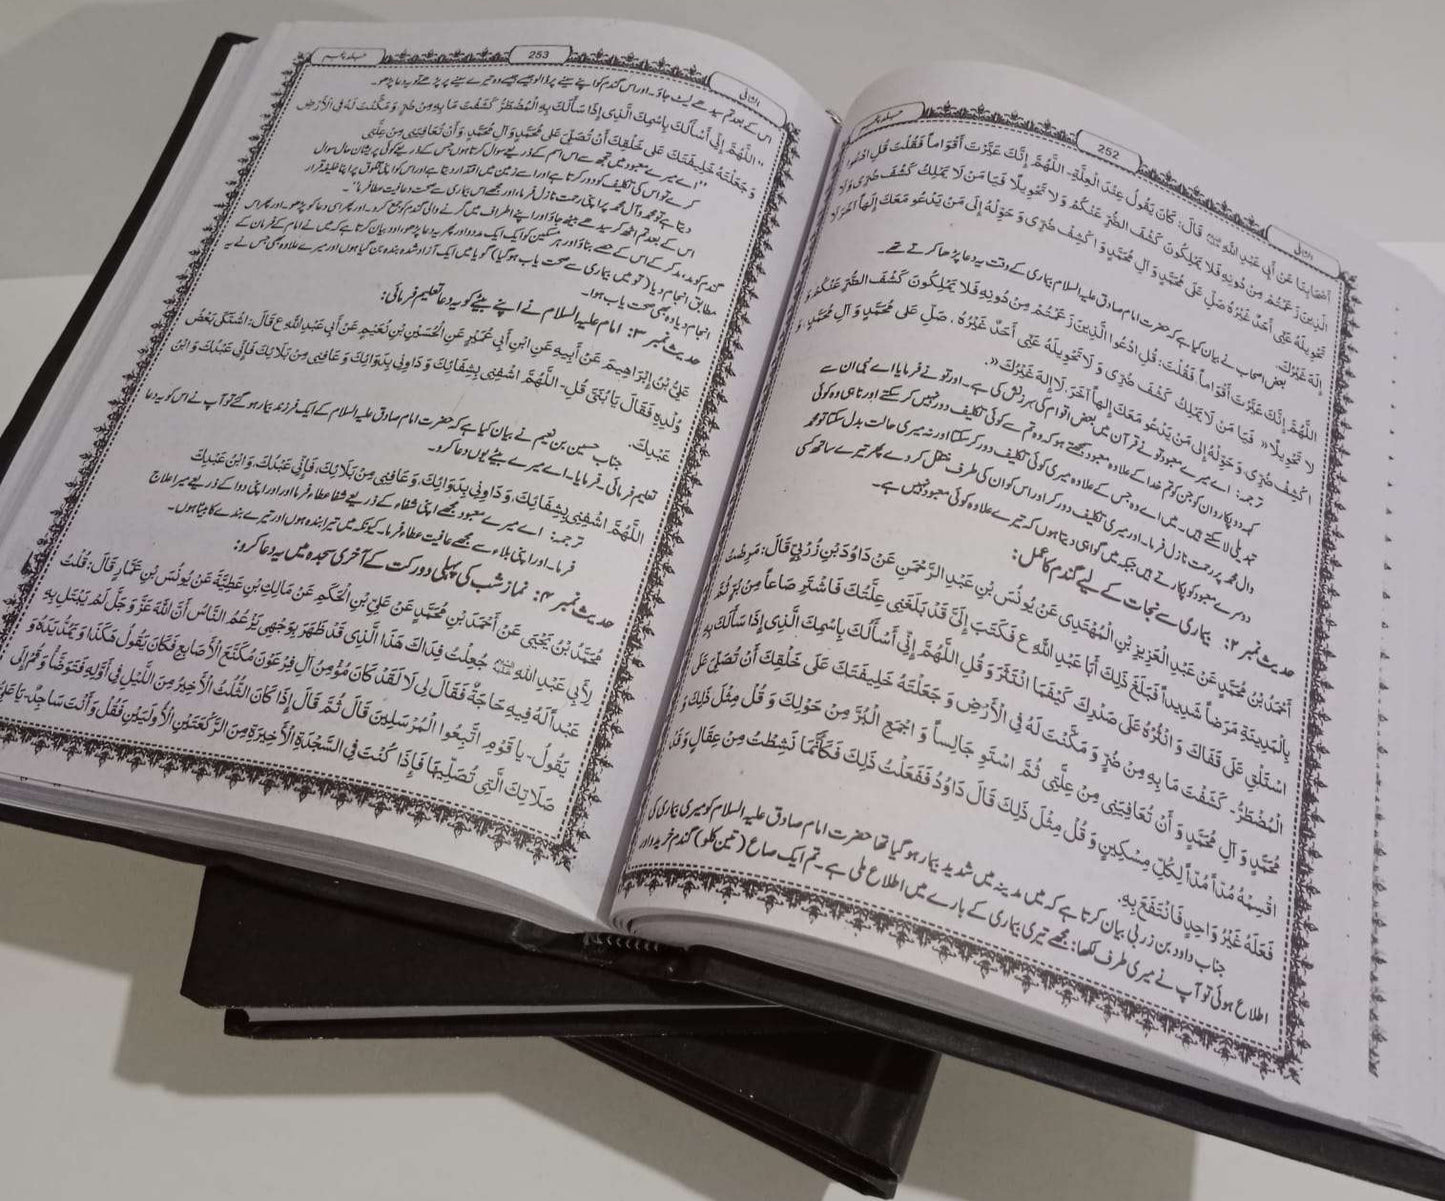 252
الشافی
أَصْحَابِنَا عَنْ أَبِي عَبْدِ اللهِ قَالَ: كَانَ يَقُولُ عِنْدَ الْعِلَّةِ۔ اللَّهُمَّ إِنَّكَ عَيَّرْتَ أَقْوَاماً فَقُلْتَ قُلِ ادْعُوا
الَّذِينَ زَعَمْتُمْ مِنْ دُونِهِ فَلَا يَمْلِكُونَ كَشْفَ الضُّرِّ عَنْكُمْ وَ لَا تَحْوِيلًا فَيَا مَنْ لَا يَمْلِكُ كَشْفَ ضُرِّي وَ لَا
تَحْوِيلَهُ عَنِّي أَحَدٌ غَيْرُهُ صَلِّ عَلَى مُحَمَّدٍ وَ آلِ مُحَمَّدٍ وَ اكْشِفْ ضُرِّي وَ حَوِّلْهُ إِلَى مَنْ يَدْعُو مَعَكَ إِلَهاً آخَرَ لَا
إِلَهَ غَيْرُكَ.
بعض اصحاب نے بیان کیا ہے کہ حضرت امام صادق علیہ السلام بیماری کے وقت یہ دعا پڑھا کرتے تھے۔
اللَّهُمَّ إِنَّكَ عَيَّرْتَ أَقْوَاماً فَقُلْتَ: قُلِ ادْعُوا الَّذِينَ زَعَمْتُمْ مِنْ دُونِهِ فَلَا يَمْلِكُونَ كَشْفَ الضُّرِّ عَنْكُمْ وَ
لا تَحْوِيلًا» فَيَا مَنْ لَا يَمْلِكُ كَشْفَ ضُرِّي وَ لَا تَحْوِيلَهُ عَنِّي أَحَدٌ غَيْرُهُ . صَلِّ عَلَى مُحَمَّدٍ وَ آلِ مُحَمَّدٍ، وَ
اكْشِفْ ضُرِّي وَ حَوِّلْهُ إِلَى مَنْ يَدْعُو مَعَكَ إِلهاً آخَرَ، لَا إِلهَ غَيْرُكَ».
ترجمہ: اے میرے معبود تو نے قرآن میں بعض اقوام کی سرزنش کی ہے۔ اور تو نے فرمایا اے نبی ان سے
کہہ دو پکارو ان کو جن کو تم خدا کے علاوہ معبود سمجھتے ہو کہ وہ تم سے کوئی تکلیف دور نہیں کر سکتے اور نا ہی وہ کوئی
تبدیلی لا سکتے ہیں۔ میں اے وہ جس کے علاوہ میری کوئی تکلیف دور کر سکتا اور نہ میری حالت بدل سکتا تو محمد
وال محمد پر رحمت نازل فرما۔ اور میری تکلیف دور کر اور اس کو ان کی طرف منتقل کر دے پھر تیرے ساتھ کسی
دوسرے معبود کو پکارتے ہیں جبکہ میں گواہی دیتا ہوں کہ تیرے علاوہ کوئی معبود نہیں ہے۔
حدیث نمبر ۲: بیماری سے نجات کے لیے گندم کا عمل:
أَحْمَدُ بْنُ مُحَمَّدٍ عَنْ عَبْدِ الْعَزِيزِ بْنِ الْمُهْتَدِي عَنْ يُونُسَ بْنِ عَبْدِ الرَّحْمَنِ عَنْ دَاوُدَ بْنِ زُرْبِيٍّ قَالَ: مَرِضْتُ
بِالْمَدِينَةِ مَرَضاً شَدِيداً فَبَلَغَ ذَلِكَ أَبَا عَبْدِ اللهِ ع فَكَتَبَ إِلَيَّ قَدْ بَلَغَنِي عِلَّتُكَ فَاشْتَرِ صَاعاً مِنْ بُرٍّ ثُمَّ
اسْتَلْقِ عَلَى قَفَاكَ وَ انْثُرْهُ عَلَى صَدْرِكَ كَيْفَمَا انْتَثَرَ وَ قُلِ اللَّهُمَّ إِنِّي أَسْأَلُكَ بِاسْمِكَ الَّذِي إِذَا سَأَلَكَ بِهِ
الْمُضْطَرُّ۔ كَشَفْتَ مَا بِهِ مِنْ ضُرٍّ وَ مَكَّنْتَ لَهُ فِي الْأَرْضِ وَ جَعَلْتَهُ خَلِيفَتَكَ عَلَى خَلْقِكَ أَنْ تُصَلِّيَ عَلَى
مُحَمَّدٍ وَ آلِ مُحَمَّدٍ وَ أَنْ تُعَافِيَنِي مِنْ عِلَّتِي ثُمَّ اسْتَوِ جَالِساً وَ اجْمَعِ الْبُرَّ مِنْ حَوْلِكَ وَ قُلْ مِثْلَ ذَلِكَ وَ
اقْسِمْهُ مُدّاً مُدّاً لِكُلِّ مِسْكِينٍ وَ قُلْ مِثْلَ ذَلِكَ قَالَ دَاوُدُ فَفَعَلْتُ ذَلِكَ فَكَأَنَّمَا نَشِطْتُ مِنْ عِقَالٍ وَ قَدْ
فَعَلَهُ غَيْرُ وَاحِدٍ فَانْتَفَعَ بِهِ.
جناب داود بن زربی بیان کرتا ہے کہ میں مدینہ میں شدید بیمار ہو گیا تھا حضرت امام صادق علیہ السلام کو میری بیماری کی
اطلاع ہوئی تو آپ نے میری طرف لکھا: مجھے تیری بیماری کے بارے میں اطلاع ملی ہے۔ تم ایک صاع (تین کلو) گندم خریدو اور
253
الشافی
اس کے بعد تم سیدھے لیٹ جاؤ۔ اور اس گندم کو اپنے سینے پر ڈالو جیسے جیسے وہ تیرے سینے پر پڑے تو یہ دعا پڑھو۔
"اللَّهُمَّ إِنِّي أَسْأَلُكَ بِاسْمِكَ الَّذِي إِذَا سَأَلَكَ بِهِ الْمُضْطَرُّ كَشَفْتَ مَا بِهِ مِنْ ضُرٍّ وَ مَكَّنْتَ لَهُ فِي الْأَرْضِ
وَ جَعَلْتَهُ خَلِيفَتَكَ عَلَى خَلْقِكَ أَنْ تُصَلِّيَ عَلَى مُحَمَّدٍ وَ آلِ مُحَمَّدٍ وَ أَنْ تُعَافِيَنِي مِنْ عِلَّتِي
"اے میرے معبود میں تجھ سے اس اسم کے ذریعے سوال کرتا ہوں جس کے ذریعے کوئی پریشان حال سوال
کرے تو اس کی تکلیف کو دور کرتا ہے اور اسے زمین میں اقتدار دیتا ہے اور اس کو اپنی مخلوق پر اپنا خلیفہ قرار
دیتا ہے تو محمد و آل محمد پر اپنی رحمت نازل فرما، اور مجھے اس بیماری سے صحت و عافیت عطا فرما"۔
اس کے بعد تم اٹھ کر سیدھے بیٹھ جاؤ اور اپنے اطراف میں گرنے والی گندم کو جمع کرو۔ اور پھر اسی دعا کو پڑھو۔ اور پھر اس
گندم کو مد مد کر کے اس کے حصے بناؤ اور ہر مسکین کو ایک ایک مد دو اور پھر یہ دعا پڑھو، داود بیان کرتا ہے کہ میں نے امام کے فرمان کے
مطابق انجام دیا (تو میں بیماری سے صحت یاب ہو گیا) گویا میں ایک آزاد شدہ بندہ بن گیا ہوں اور میرے علاوہ بھی جس نے یہ
انجام دیا وہ بھی صحت یاب ہوا۔
حدیث نمبر ۳: امام علیہ السلام نے اپنے بیٹے کو یہ دعا تعلیم فرمائی:
عَلِيُّ بْنُ إِبْرَاهِيمَ عَنْ أَبِيهِ عَنِ ابْنِ أَبِي عُمَيْرٍ عَنِ الْحُسَيْنِ بْنِ نُعَيْمٍ عَنْ أَبِي عَبْدِ اللهِ ع قَالَ: اشْتَكَى بَعْضُ
وُلْدِهِ فَقَالَ يَا بُنَيَّ قُلِ۔ اللَّهُمَّ اشْفِنِي بِشِفَائِكَ وَ دَاوِنِي بِدَوَائِكَ وَ عَافِنِي مِنْ بَلَائِكَ فَإِنِّي عَبْدُكَ وَ ابْنُ
عَبْدِكَ.
جناب حسین بن نعیم نے بیان کیا ہے کہ حضرت امام صادق علیہ السلام کے ایک فرزند بیمار ہو گئے تو آپ نے اس کو یہ دعا
تعلیم فرمائی۔ فرمایا۔ اے میرے بیٹے یوں دعا کرو۔
اللَّهُمَّ اشْفِنِي بِشِفَائِكَ، وَ دَاوِنِي بِدَوَائِكَ وَ عَافِنِي مِنْ بَلَائِكَ، فَإِنِّي عَبْدُكَ، وَ ابْنُ عَبْدِكَ
ترجمہ: اے میرے معبود مجھے اپنی شفاء کے ذریعے شفا عطاء فرما اور اور اپنی دوا کے ذریعے میرا علاج
فرما۔ اور اپنی بلاء سے مجھے عافیت عطاء فرما۔ کیونکہ میں تیرا بندہ ہوں اور تیرے بندے کا بیٹا ہوں۔
حدیث نمبر ۴: نماز شب کی پہلی دو رکعت کے آخری سجدہ میں یہ دعا کرو:
مُحَمَّدُ بْنُ يَحْيَى عَنْ أَحْمَدَ بْنِ مُحَمَّدٍ عَنْ عَلِيِّ بْنِ الْحَكَمِ عَنْ مَالِكِ بْنِ عَطِيَّةَ عَنْ يُونُسَ بْنِ عَمَّارٍ قَالَ: قُلْتُ
لِأَبِي عَبْدِ اللهِ جُعِلْتُ فِدَاكَ هَذَا الَّذِي قَدْ ظَهَرَ بِوَجْهِي يَزْعُمُ النَّاسُ أَنَّ اللهَ عَزَّ وَ جَلَّ لَمْ يَبْتَلِ بِهِ
عَبْداً لَهُ فِيهِ حَاجَةٌ فَقَالَ لِي لَا لَقَدْ كَانَ مُؤْمِنُ آلِ فِرْعَوْنَ مُكَنَّعَ الْأَصَابِعِ فَكَانَ يَقُولُ هَكَذَا وَ يَمُدُّ يَدَهُ وَ
يَقُولُ۔ يا قَوْمِ اتَّبِعُوا الْمُرْسَلِينَ قَالَ ثُمَّ قَالَ إِذَا كَانَ الثُّلُثُ الْأَخِيرُ مِنَ اللَّيْلِ فِي أَوَّلِهِ فَتَوَضَّأْ وَ قُمْ إِلَى
صَلَاتِكَ الَّتِي تُصَلِّيهَا فَإِذَا كُنْتَ فِي السَّجْدَةِ الْأَخِيرَةِ مِنَ الرَّكْعَتَيْنِ الْأُولَيَيْنِ فَقُلْ وَ أَنْتَ سَاجِدٌ۔ يَا عَلِيُّ